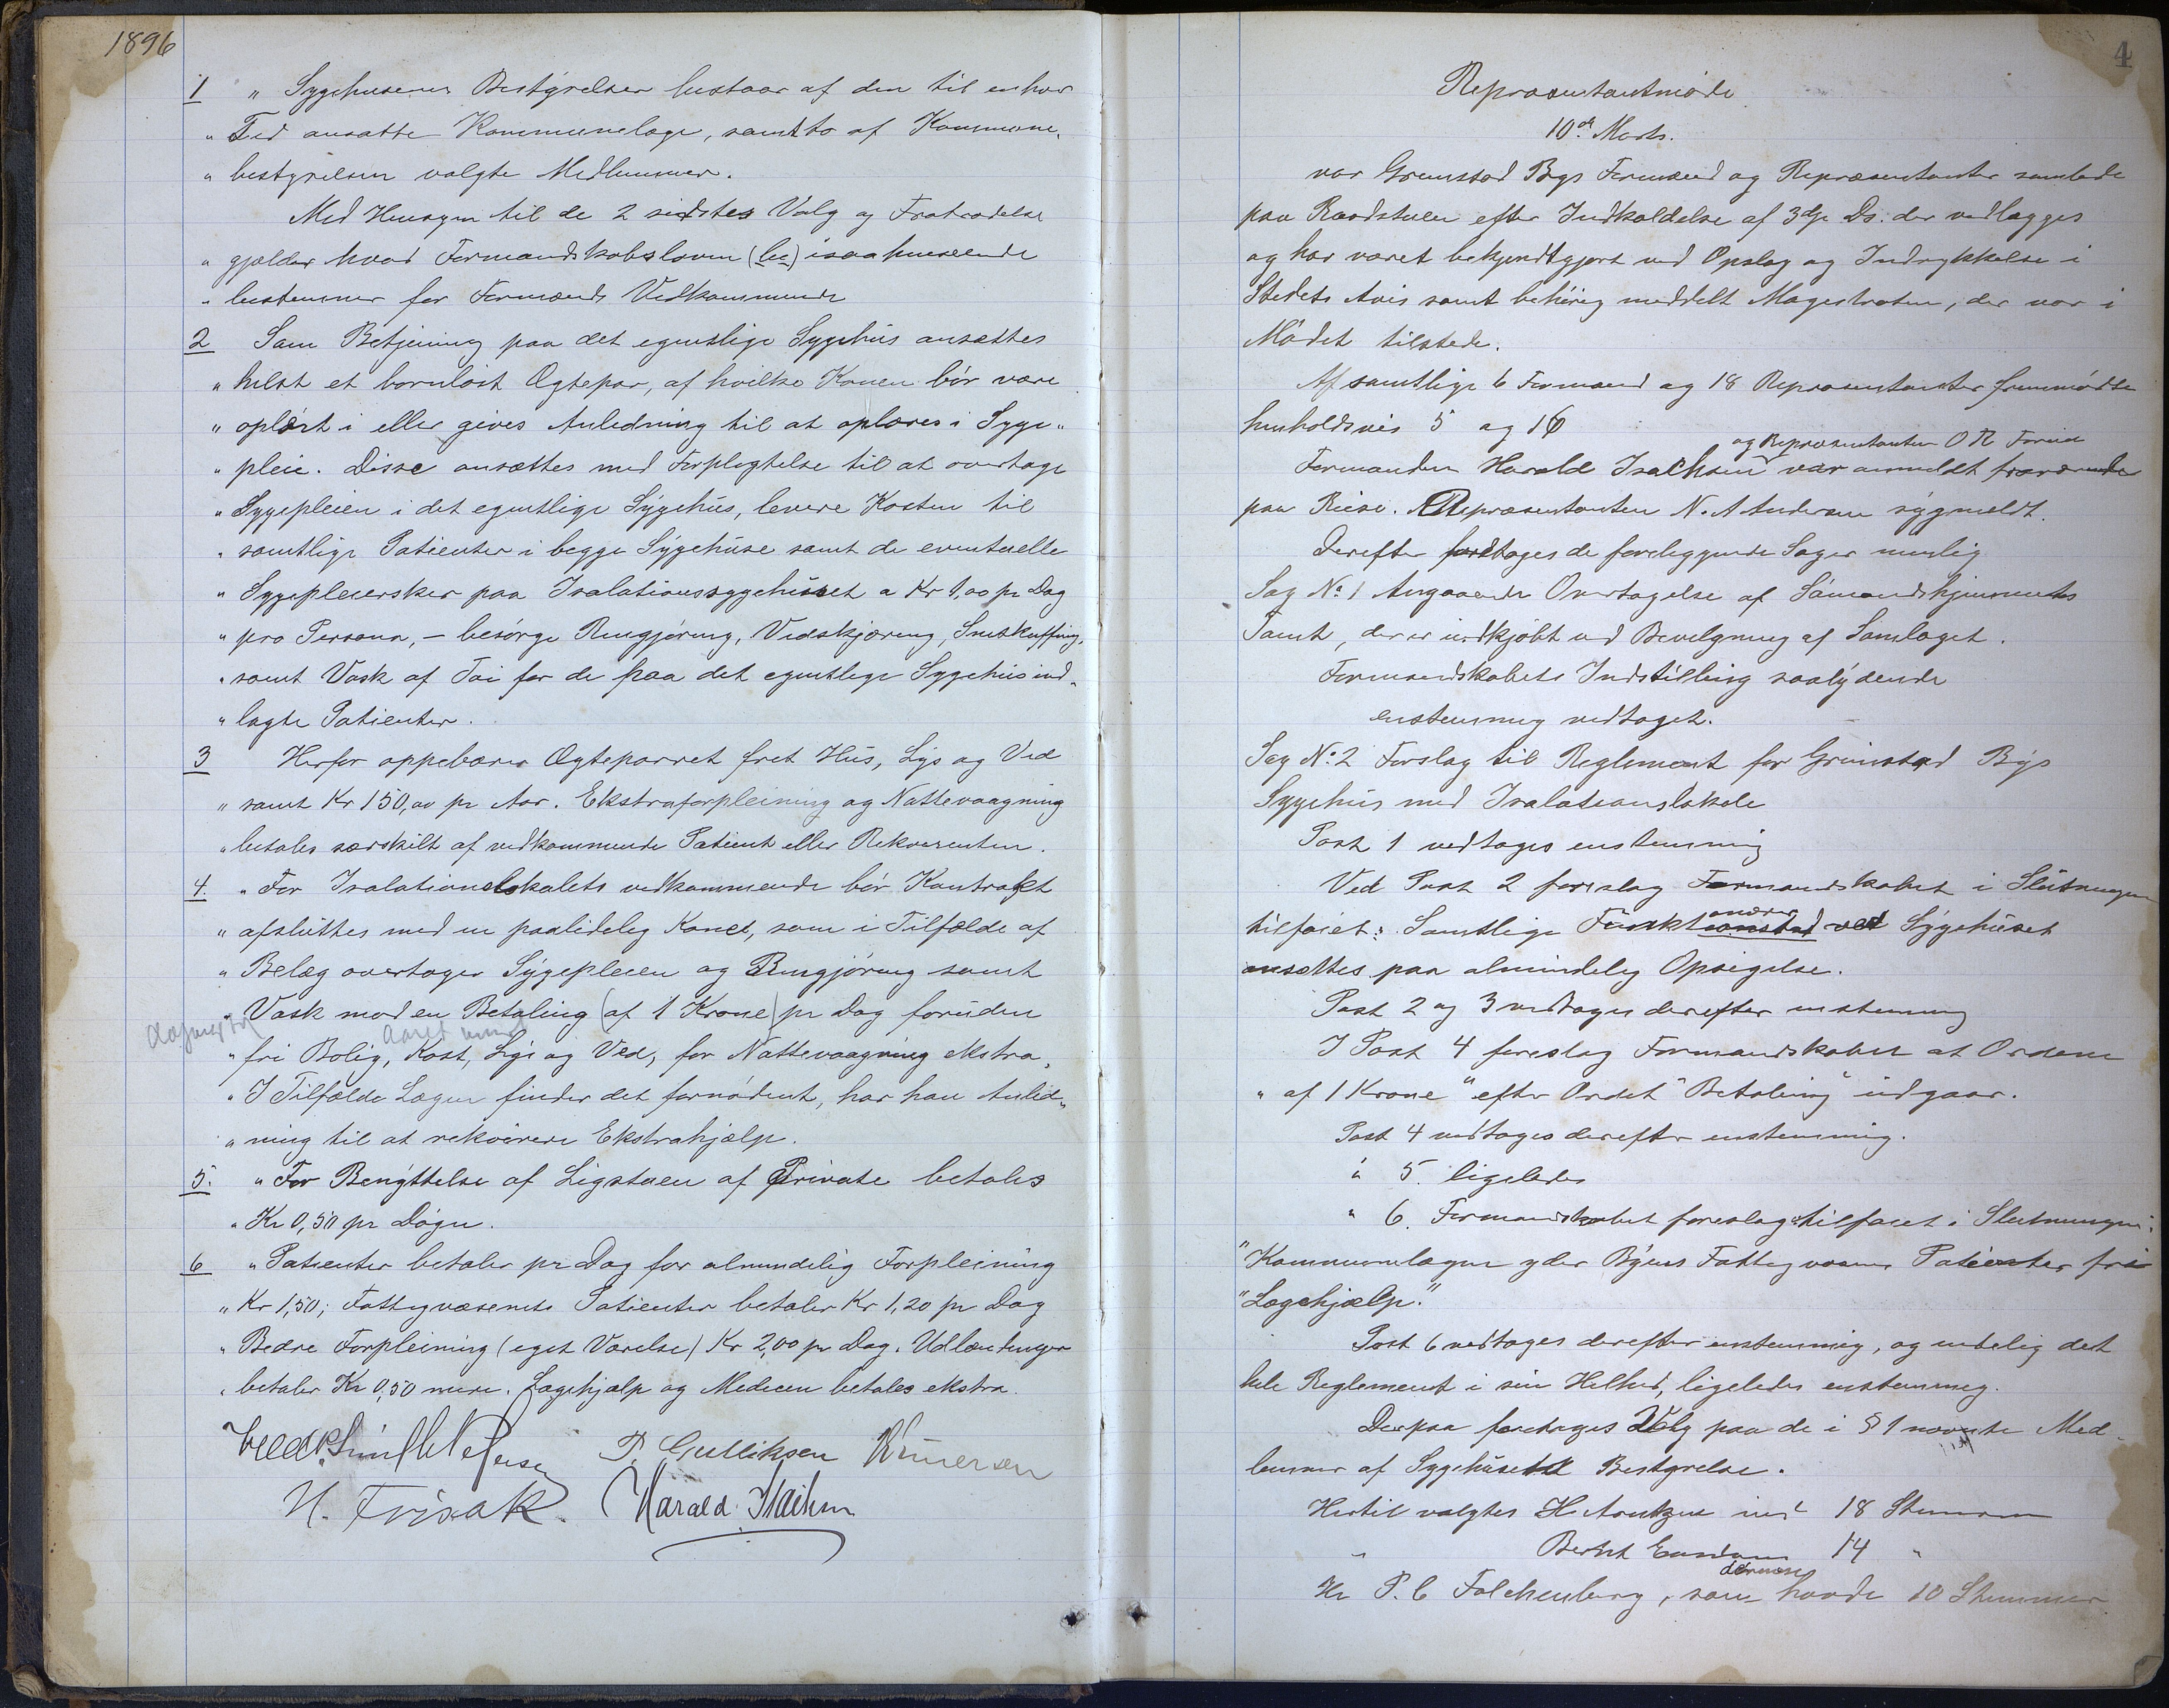 1896
1 " Sygehusenes Bestyrelser bestaar af den til enhver
" Tid ansatte Kommunelæge, samt to af Kommune-
" bestyrelsen valgte Medlemmer.
Med Hensyn til de 2 sidstes Valg og Fratrædelse
" gjælder hvad Formandskabsloven isaahenseende
" bestemmer for Formænds Vedkommende
2 Som Betjening paa det egentlige Sygehus ansættes
" helst et barnløst Ægtepar, af hvilke Konen bør være
" oplært i eller gives Anledning til at oplæres i Syge-
" pleie. Disse ansættes med Forpligtelse til at overtage
" Sygepleien i det egentlige Sygehus, levere Kosten til
" samtlige Patienter i begge Sygehuse samt de eventuelle
" Sygepleiersker paa Isolationssygehuset a Kr 1,00 pr Dag
" pro Persona, – besørge Rengjøring, Vedskjæring, Snekuffing,
" samt Vask af Tøi for de paa det egentlige Sygehus ind-
" lagte Patienter.
3 Herfor oppebærer Ægteparret frit Hus, Lys og Ved
" samt Kr 150,00 pr Aar. Ekstraforpleining og Nattevaagning
" betales særskilt af vedkommende Patient eller Rekvirenten.
4. " For Isolationslokalets vedkommende bør Kontrakt
" afsluttes med en paalidelig Kone, som i Tilfælde af
" Belæg overtager Sygepleien og Rengjøring samt
" Vask mod en Betaling (af 1 Krone) pr Dag foruden
" fri Bolig, Kost, Lys og Ved, for Nattevaagning ekstra,
" I Tilfælde Lægen finder det fornødent, har han Anled-
" ning til at rekvirere Ekstrahjælp.
5. " For Benyttelse af Ligstuen af Private betales
" Kr 0,50 pr Døgn.
6 " Patienter betaler pr Dag for almindelig Forpleining
" Kr 1,50; Fattigvæsenets Patienter betaler Kr 1,20 pr Dag
" Bedre Forpleining (eget Værelse) Kr 2,00 pr Dag. Udlændinger
" betaler Kr 0,50 mere. Lægehjælp og Medicin betales ekstra.
Smith Petersen P. Gulliksen
H. Frisak. Harald Isachsen
4
Repræsentantmøde
10de Marts.
var Grimstad Bys Formænd og Repræsentanter samlede
paa Raadstuen efter Indkaldelse af 3die Ds. der vedlægges
og har været bekjendtgjort ved Opslag og Indrykkelse i
Stedets Avis samt behørig meddelt Magistraten, der var i
Mødet tilstede.
Af samtlige 6 Formænd og 18 Repræsentanter fremmødte
henholdsvis 5 og 16
og Repræsentanten
Formanden Harald Isachsen var anmeldt fraværende
paa Reise. Repræsentanten N. A Andersen sygmeldt.
Derefter foretages de foreliggende Sager nemlig
Sag No 1 Angaaende Overtagelse af Sømandshjemmets
Tomt, der er indkjøbt ved Bevilgning af Samlaget.
Formandskabets Indstilling saalydende
enstemmig vedtaget.
Sag No 2 Forslag til Reglement for Grimstad Bys
Sygehus med Isolationslokale
Post 1 vedtages enstemmig
Ved Post 2 foreslog Formandskabet i Slutningen
tilføiet: Samtlige Funktionærer ved Sygehuset
ansættes paa almindelig Opsigelse.
Post 2 og 3 vedtages derefter enstemmig
I Post 4 foreslog Formandskabet at Ordene
" af 1 Krone " efter Ordet " Betaling " udgaar.
Post 4 vedtages derefter enstemmig.
" 5. ligeledes
" 6. Formandskabet foreslog tilføiet i Slutningen:
" Kommunelægen yder Byens Fattigvæsens Patienter fri
" Lægehjælp."
Post 6 vedtages derefter enstemmig, og endelig det
hele Reglement i sin Helhed, ligeledes enstemmig.
Derpaa foretages Valg paa de i § 1 nævnte Med-
lemmer af Sygehusets Bestyrelse.
Hertil valgtes H Arntzen med 18 Stemmer
" Berht 14 "
dernæst
Hr P. C Falchenberg, som havde 10 Stemmer